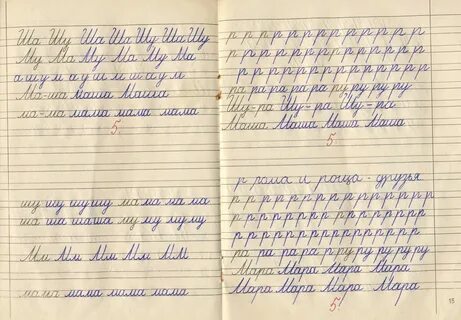 Ша Шу Ша Ша Шу Ша Шу
Му Ма Му Ма Му Ма
а ш у м а у ш м ш а у м
Ма-ша Маша Маша
ма-ма мама мама мама
5
шу шу шу шу ма ма ма ма
ша ша шаша му му му му
Мм Мм Мм Мм ММ
мама мама мама мама
р р р р р р р р р р р р р р
р р р р р р р р р р р р р р
р р р р р р р р р р р р р р
ра ра ра ра ра ру ру ру ру
Шу-ра Шу-ра Шу-ра
Маша Маша Маша Маша
5
р рома и роща - друзья
р р р р р р р р р р р р р р р
р р р р р р р р р р р р р р р
р р р р р р р р р р р р р р р
ра ра ра ра р ру ру ру ру ру
Мара Мара Мара Мара
Мара Мара Мара Мара
5
15